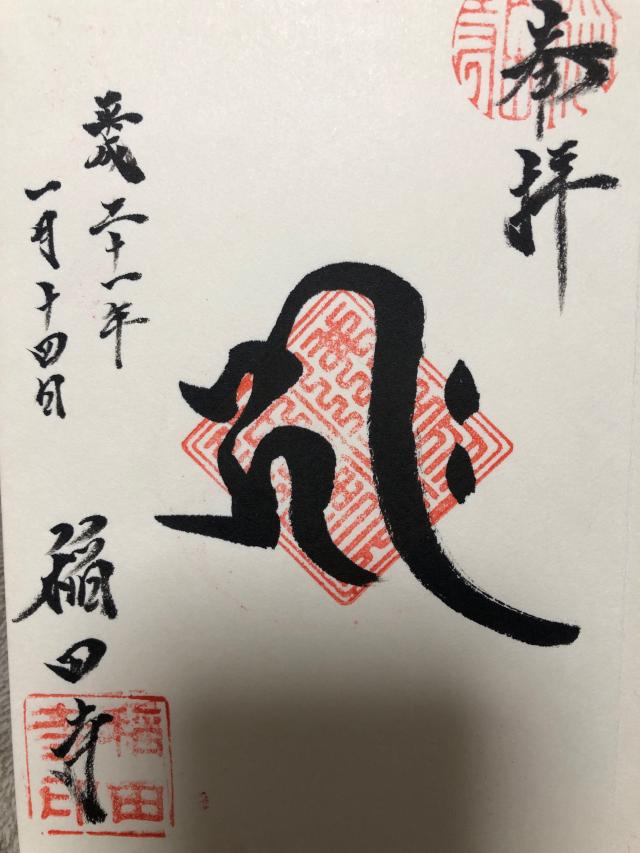 奉拝
ह्रीः
平成二十一年
一月十四日
稲田寺
稲田
寺印